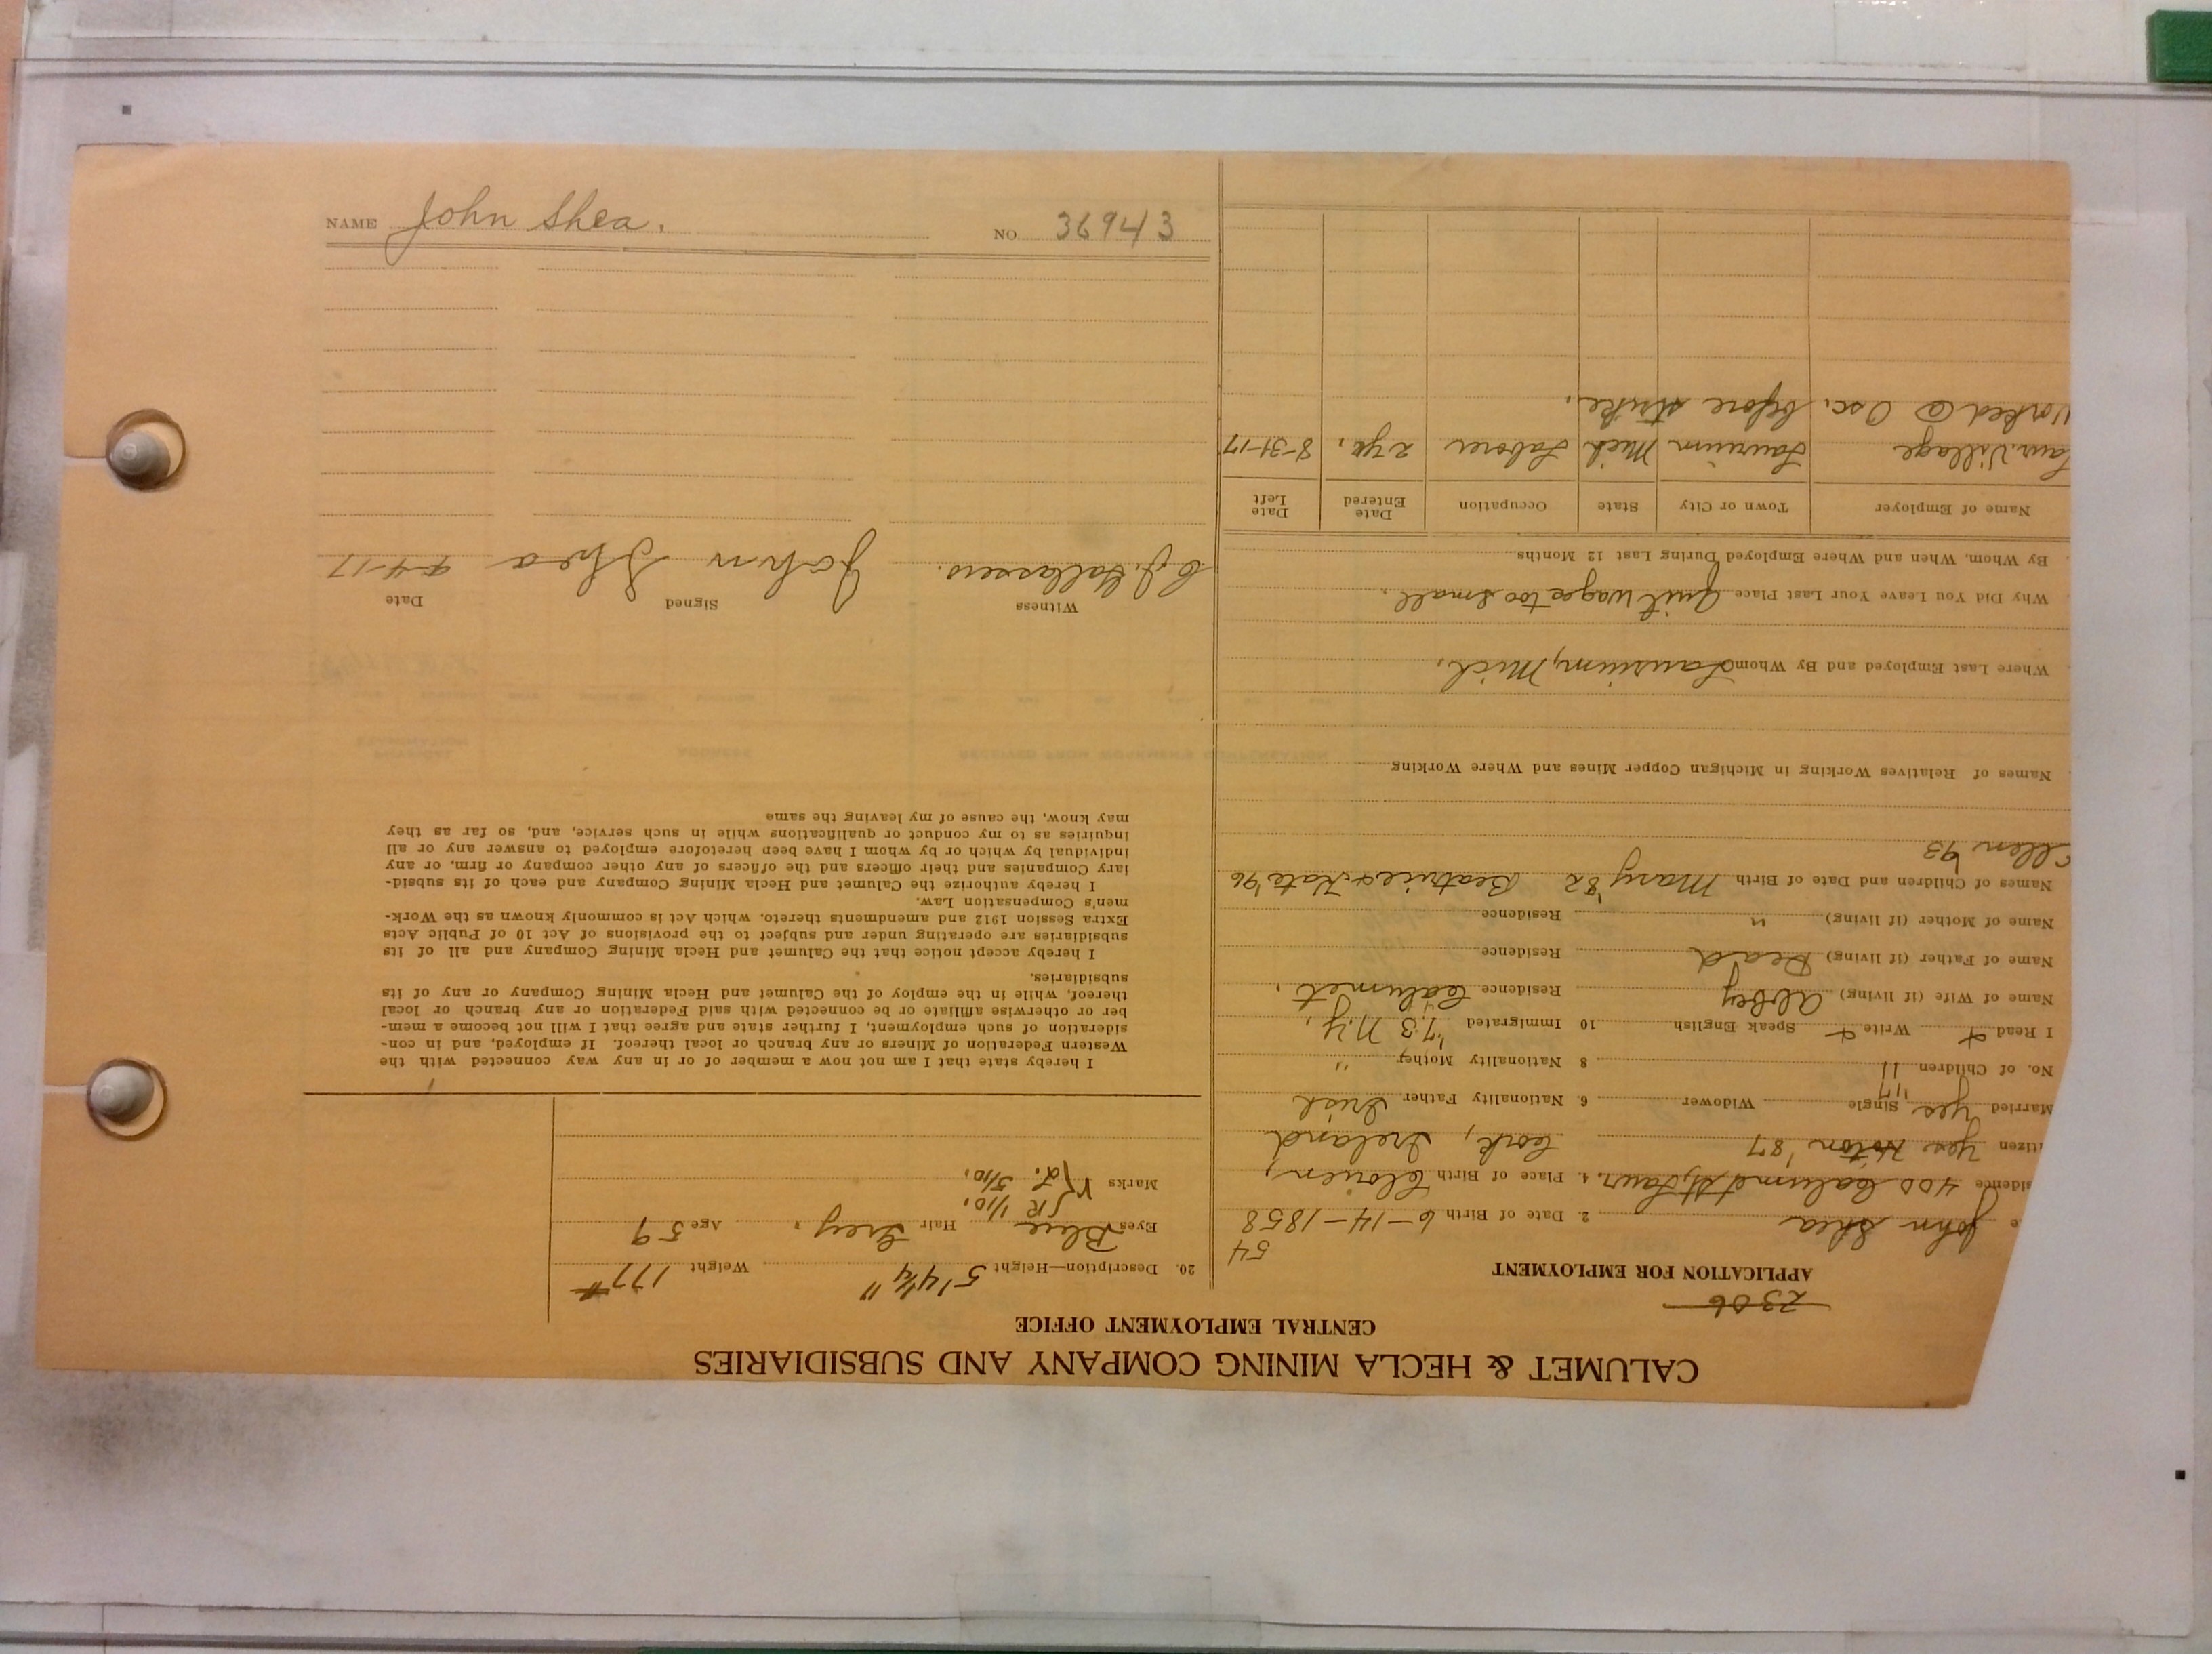 CALUMET & HECLA MINING COMPANY AND SUBSIDIARIES
CENTRAL EMPLOYMENT OFFICE
2306
APPLICATION FOR EMPLOYMENT
54
e John Shea 2. Date of Birth 6-14-1858
sidence 400 Calumet St, Laur. 4. Place of Birth
itizen yes Hoton '87 Cork, Ireland
Married yes Single Widower 6. Nationality Father Irish
No. of Children 11 8 Nationality Mother "
I Read & Write & Speak English 10 Immigrated '73 N.Y.
Name of Wife (if living) Abbey Residence Calumet.
Name of Father (if living) Dead Residence
Name of Mother (if living) " Residence
Names of Children and Date of Birth Mary '82 Beatrice & Kate '96
Ellen 93
Names of Relatives Working in Michigan Copper Mines and Where Working
Where Last Employed and By Whom Laurium, Mich.
Why Did You Leave Your Last Place Quit wages too small.
By Whom, When and Where Employed During Last 12 Months
Name of Employer Town or City State Occupation Date Entered Date Left
Laur. Village Laurium Mich Laborer 2 yr. 8-31-17
Worked @ Osc. before strike.
20. Description—Height 5' 4¼" Weight 177#
Eyes Blue Hair Grey. Age 59
Marks V { R 1/10. L. 5/10.
I hereby state that I am not now a member of or in any way connected with the
Western Federation of Miners or any branch or local thereof. If employed, and in con-
sideration of such employment, I further state and agree that I will not become a mem-
ber or otherwise affiliate or be connected with said Federation or any branch or local
thereof, while in the employ of the Calumet and Hecla Mining Company or any of its
subsidiaries.
I hereby accept notice that the Calumet and Hecla Mining Company and all of its
subsidiaries are operating under and subject to the provisions of Act 10 of Public Acts
Extra Session 1912 and amendments thereto, which Act is commonly known as the Work-
men's Compensation Law.
I hereby authorize the Calumet and Hecla Mining Company and each of its subsid-
iary Companies and their officers and the officers of any other company or firm, or any
individual by which or by whom I have been heretofore employed to answer any or all
inquiries as to my conduct or qualifications while in such service, and, so far as they
may know, the cause of my leaving the same
Witness Signed Date
John Shea 9-4-17
NAME John Shea. NO. 36943